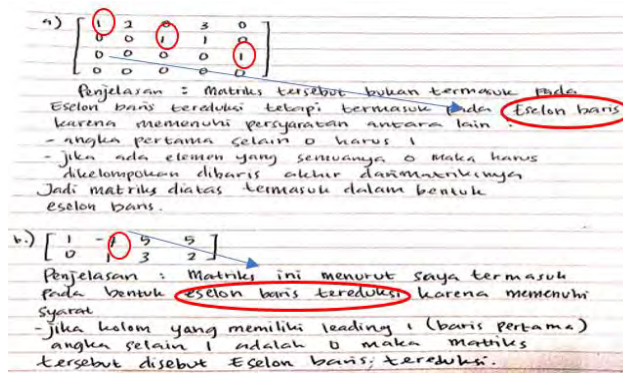 a) [ 1 2 0 3 0
0 0 1 1 0
0 0 0 0 1
0 0 0 0 0 ]
Penjelasan : Matriks tersebut bukan termasuk pada
Eselon baris tereduksi tetapi termasuk pada Eselon baris
karena memenuhi persyaratan antara lain :
- angka pertama selain 0 harus 1
- jika ada elemen yang semuanya 0 maka harus
dikelompokan dibaris akhir dari matriknya
Jadi matriks diatas termasuk dalam bentuk
eselon baris.
b.) [ 1 -1 5 5
0 1 3 2 ]
Penjelasan : Matriks ini menurut saya termasuk
pada bentuk eselon baris tereduksi karena memenuhi
syarat
- jika kolom yang memiliki leading 1 (baris pertama)
angka selain 1 adalah 0 maka matriks
tersebut disebut Eselon baris, tereduksi.